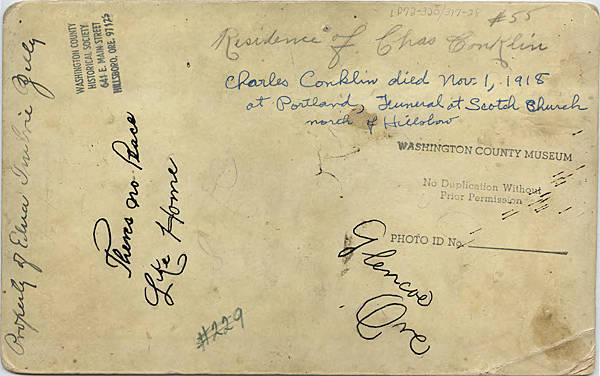 #55
Residence of Chas Conklin
Charles Conklin died Nov. 1, 1918
at Portland, Funeral at Scotch Church
north of Hillsboro
WASHINGTON COUNTY
HISTORICAL SOCIETY
641 E. MAIN STREET
HILLSBORO, ORE. 97123
WASHINGTON COUNTY MUSEUM
No Duplication Without
Prior Permission
PHOTO ID No.
Theres no Peace
Like Home
Glencoe
Ore
#229
Property of Edna Imbrie